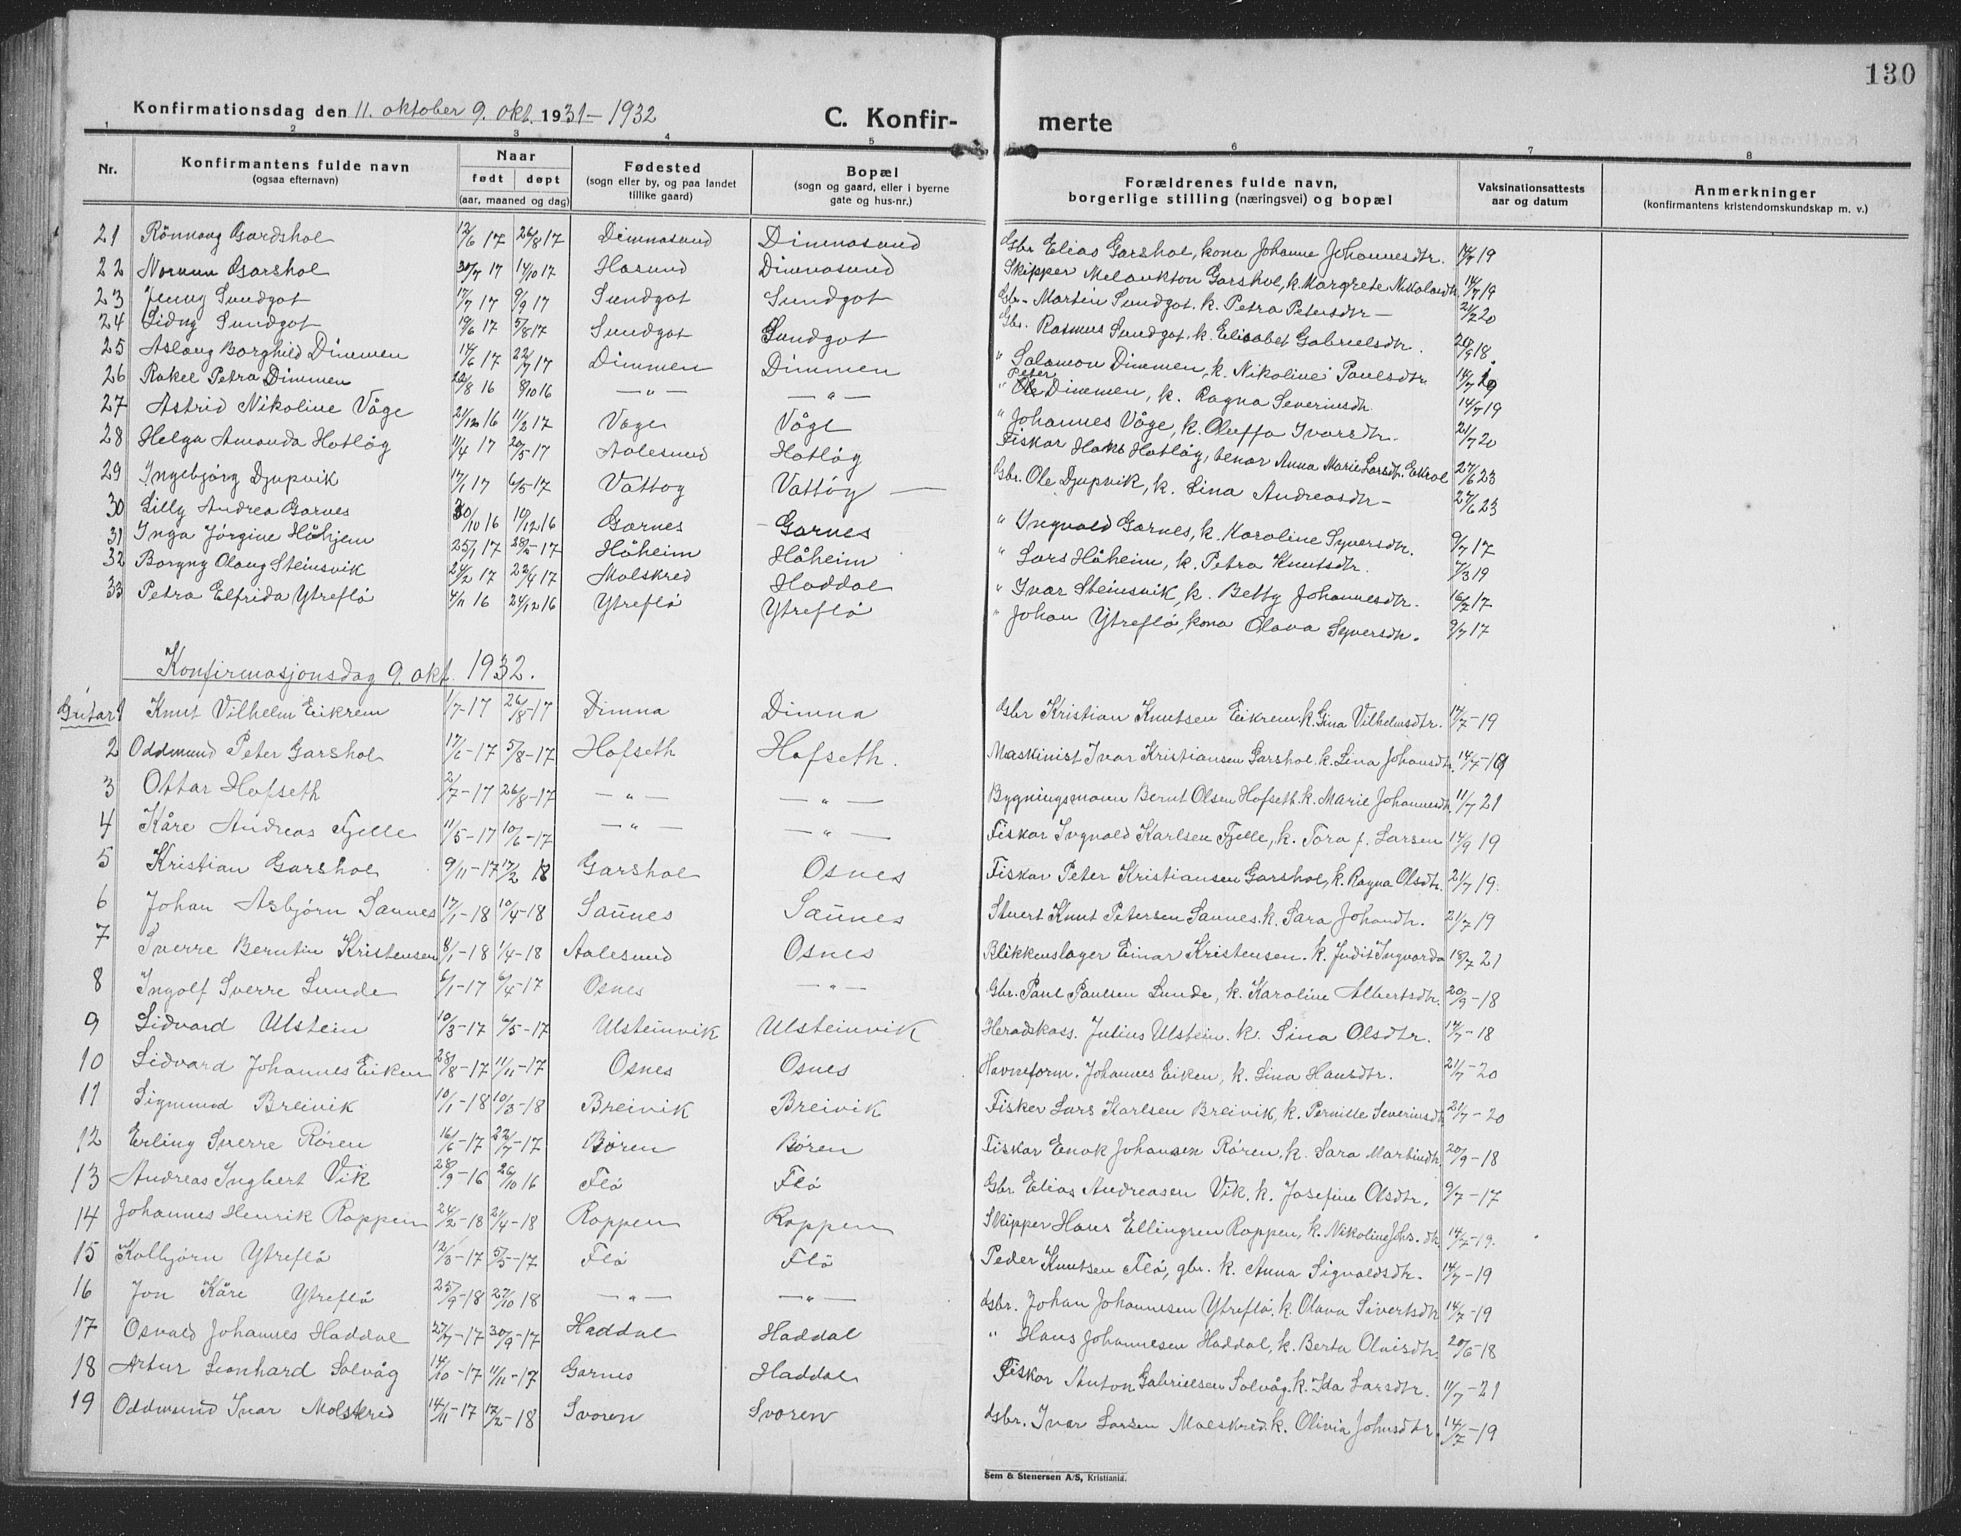 130
Konfirmationsdag den 11. oktober 9. okt. 1931–1932 C. Konfir- merte
1 2 3 4 5 6 7 8
Nr. Konfirmantens fulde navn (ogsaa efternavn) Naar født døpt (aar, maaned og dag) Fødested (sogn eller by, og paa landet tillike gaard) Bopæl (sogn og gaard, eller i byerne gate og hus-nr.) Forældrenes fulde navn, borgerlige stilling (næringsvei) og bopæl Vaksinationsattests aar og datum Anmerkninger (konfirmantens kristendomskundskap m. v.)
21 Rönnaug Gardshol 12/6 17 26/8 17 Dimnasund Dimnasund Gbr. Elias Garshol, kona Johanne Johannesdtr. 14/7 19
22 Garshol 30/7 17 14/10 17 Hasund Dimnasund Skipper Melankton Garshol, k. Margrete Nikolaidtr. 14/7 19
23 Jenny Sundgot 17/7 17 9/9 17 Sundgot Sundgot Gbr. Martin Sundgot. k. Petra Petersdtr – 21/7 20
24 Sidny Sundgot 19/6 17 5/8 17 Sundgot Sundgot Gbr. Rasmus Sundgot. k. Elisabet Gabrielsdtr. 20/9 18
25 Aslaug Borghild Dimmen 14/6 17 22/7 17 Dimmen Dimmen " Salamon Dimmen, k. Nikoline Paulsdtr. 14/7 19
26 Rakel Petra Dimmen 22/8 16 8/10 16 — " — — " — " Peter Dimmen, k. Ragna Severinsdtr. 14/7 19
27 Astrid Nikoline Våge 21/12 16 11/2 17 Våge Våge " Johannes Våge, k. Oluffa Ivarsdtr. 21/7 20
28 Helga Amanda Hatløy 11/4 17 20/5 17 Aalesund Hatløy Fiskar Haks Hatløy, Anna Marie Larsdtr. 27/6 23
29 Ingebjørg Djupvik 17/1 17 6/5 17 Vattøy Vattøy — Gbr. Ole Djupvik, k. Lina Andreasdtr – 27/6 23
30 Lilly Andrea Garnes 30/10 16 10/12 16 Garnes Garnes " Ingvald Garnes, k. Karoline Syversdtr. 9/7 17
31 Inga Jörgine Håhjem 25/1 17 28/5 17 Håheim Håheim " Lars Håheim, k. Petra Knutsdtr. 7/3 19
32 Borgny Olaug Steinsvik 24/2 17 22/4 17 Molskred Haddal " Ivar Steinsvik, k. Betty Johannesdtr. 16/7 17
33 Petra Elfrida Ytreflö 4/11 16 24/12 16 Ytreflö Ytreflö " Johan Ytreflö, kona Olava Syversdtr. 9/7 17
Konfirmasjonsdag 9. okt. 1932.
Gutar 1 Knut Vilhelm Eikrem 1/7-17 26/8-17 Dimna Dimna Gbr Kristian Knutsen Eikrem. k. Gina Vilhelmsdtr. 17/7-19
2 Oddmund Peter Garshol 17/6-17 5/8-17 Hofseth Hofseth. Maskinist Ivar Kristiansen Garshol. k. Lina Johansdtr. 14/7-19
3 Ottar Hofseth 2/7-17 26/8-17 — " — — " — Bygningsmann Bernt Olsen Hofseth. k. Marie Johannesdtr. 11/7 21
4 Kåre Andreas Fjelle 11/5-17 10/6-17 — " — — " — Fiskar Ingvald Karlsen Fjelle, k. Tora f. Larsen 14/9 19
5 Kristian Garshol 9/11-17 17/2 18 Garshol Osnes Fiskar Peter Kristiansen Garshol, k. Ragna Olsdtr. 21/7 19.
6 Johan Asbjørn Saunes 17/1-18 10/4-18 Saunes Saunes Stuert Knut Petersen Saunes. k. Sara Johandtr. 21/7 19
7 Sverre Berntin Kristensen 8/1-18 1/4-18 Aalesund Osnes Blikkenslager Einar Kristensen. k. Judit 18/7 21
8 Ingolf Sverre Lunde 6/1-17 6/4-17 Osnes — " — Gbr. Paul Paulsen Lunde, k. Karoline Albertsdtr. 20/9-18
9 Sidvard Ulstein 10/3-17 6/5-17 Ulsteinvik Ulsteinvik Heradskass. Julius Ulstein. k. Lina Olsdtr. 17/7-18
10 Sidvard Johannes Eiken 28/8-17 11/11-17 Osnes Osnes Havneform. Johannes Eiken, k. Lina Hansdtr. 21/7-20
11 Sigmund Breivik 10/1-18 10/3-18 Breivik Breivik Fisker Lars Karlsen Breivik, k. Pernille Severinsdtr. 21/7-20
12 Erling Sverre Røren 16/6-17 22/7-17 Røren Røren Fiskar Enok Johansen Røren, k. Sara Martindtr. 20/9-18
13 Andreas Ingbert Vik 28/9-16 26/10 16 Flö Flö Gbr. Elias Andreasen Vik. k. Josefine Olsdtr. 9/7-17
14 Johannes Henrik Roppen 24/2-18 2/4-18 Roppen Roppen Skipper Hans Ellingsen Roppen, k. Nikoline Johs.dtr. 14/7-19.
15 Kolbjörn Ytreflö 12/3-17 5/5-17 Flö Flö Peder Knutsen Flö, gbr. k. Anna Sigvaldsdtr. 14/7-19
16 Jon Kåre Ytreflö 25/9-18 27/10 18 — " — — " — Gbr. Johan Johannesen Ytreflö. k. Olava Sivertsdtr. 14/7-19
17 Osvald Johannes Haddal 27/7-17 30/9-17 Haddal Haddal " Hans Johannesen Haddal, k. Berta Olaisdtr. 20/6-18
18 Artur Leonhard Solvåg 14/10-17 11/11-17 Garnes Haddal Fiskar Anton Gabrielsen Solvåg. k. Ida Larsdtr. 11/7-21
19 Oddmund Ivar Molskred 14/11-17 17/2-18 Svoren Svoren Gbr. Ivar Larsen Molskred. k. Olivia Johnsdtr. 14/7-19
Sem & Stenersen A/S, Kristiania.